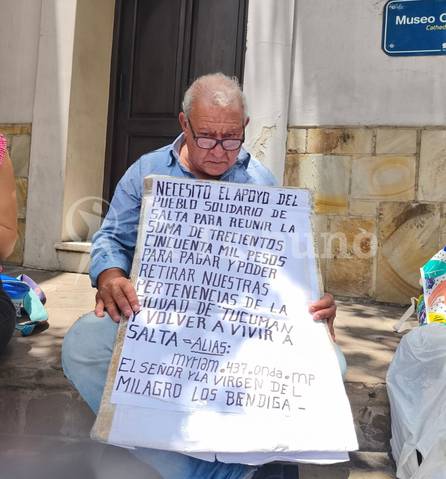 Museo C
Cated
NECESITO EL APOYO DEL
PUEBLO SOLIDARIO DE
SALTA PARA REUNIR LA
SUMA DE TRECIENTOS
CINCUENTA MIL PESOS
PARA PAGAR Y PODER
RETIRAR NUESTRAS
PERTENENCIAS DE LA
CIUDAD DE TUCUMAN
Y VOLVER A VIVIR A
SALTA = ALIAS:
myriam.437.onda.mp
EL SEÑOR Y LA VIRGEN DEL
MILAGRO LOS BENDIGA -